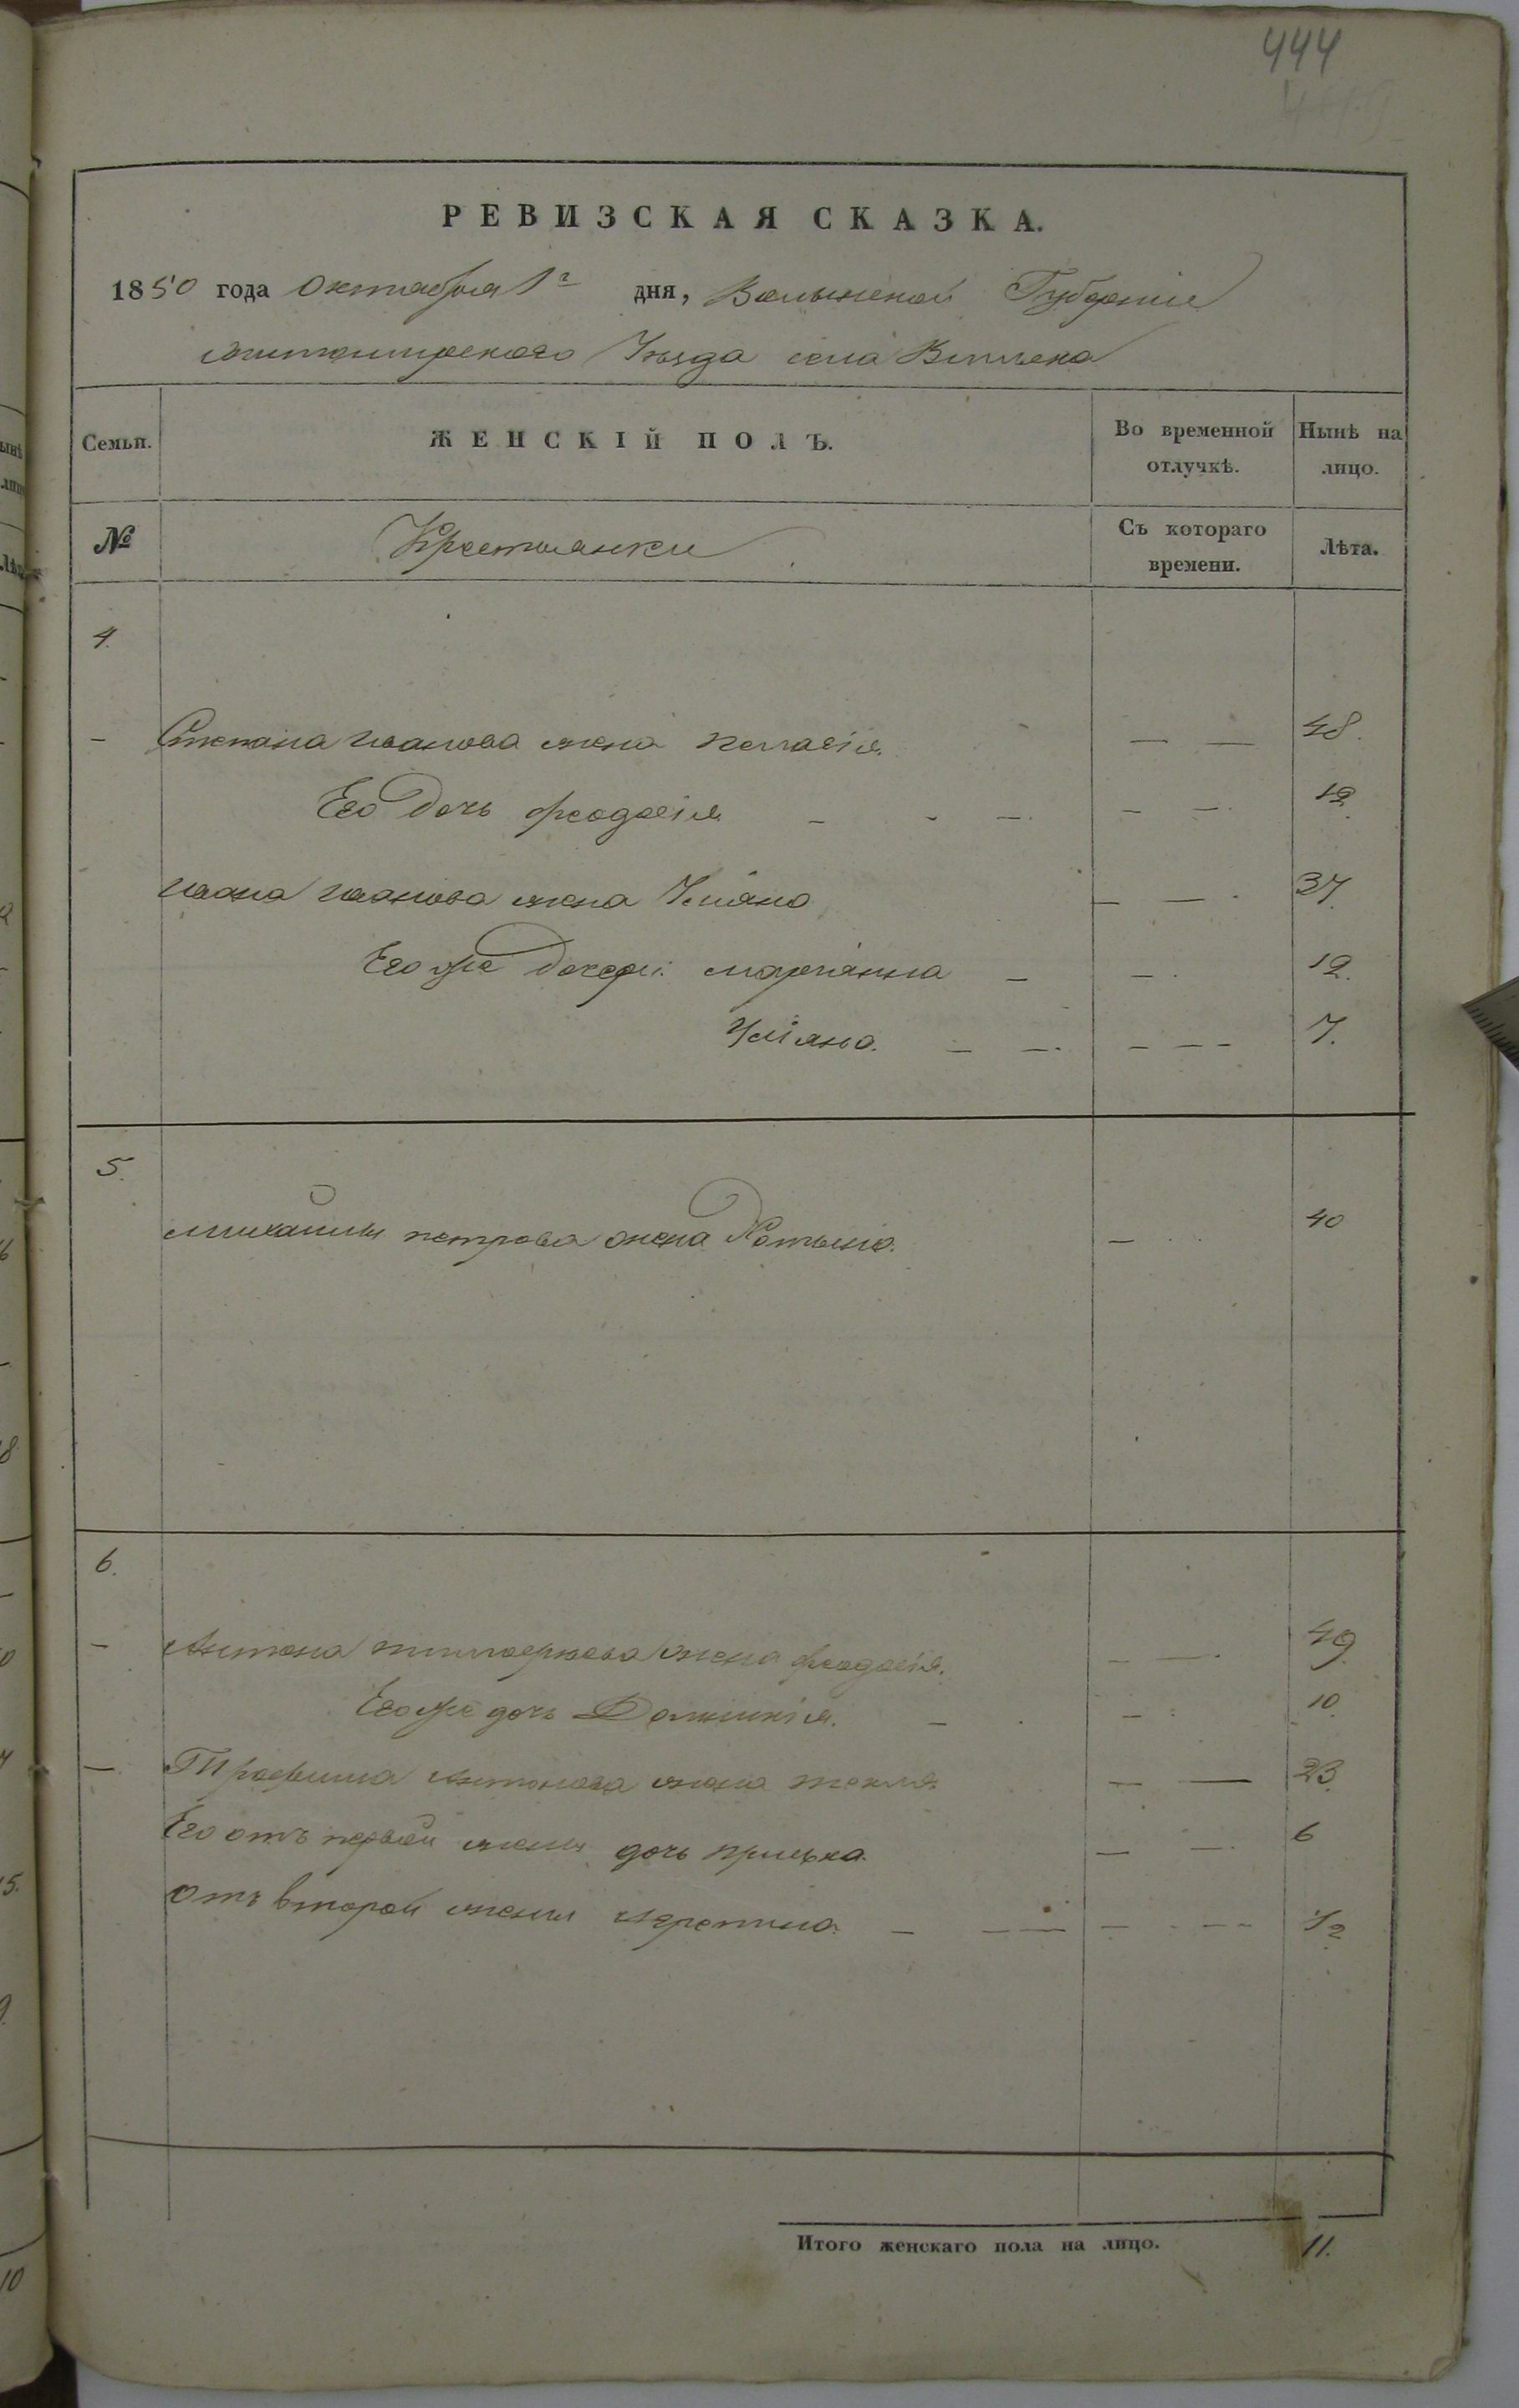 444
РЕВИЗСКАЯ СКАЗКА.
1850 года Октября 1го дня, Волынской Губерніи
Житомирского Уѣзда села
Семьи. ЖЕНСКІЙ ПОЛЪ. Во временной отлучкѣ. Нынѣ на лицо.
№ Крестьянки Съ котораго времени. Лѣта.
4.
— Степана Иванова жена Пелагія. — — 48.
Его дочь Феодосія — - — — — 12.
Ивана Иванова жена Уліяна — — 37.
Его же дочери: Маріянна — — 12.
Уліяна. — — — — — 7.
5.
Михайлы Петрова жена Катыно. — 40
6.
— Антона жена Феодосія. — — 49.
Его же дочь Домникія. — — 10.
— Трофима Антонова жена Текля — — 23.
Его отъ первой жены дочь Приська. — — 6
Отъ второй жены — — — — — — 1/2
Итого женскаго пола на лицо. 11.